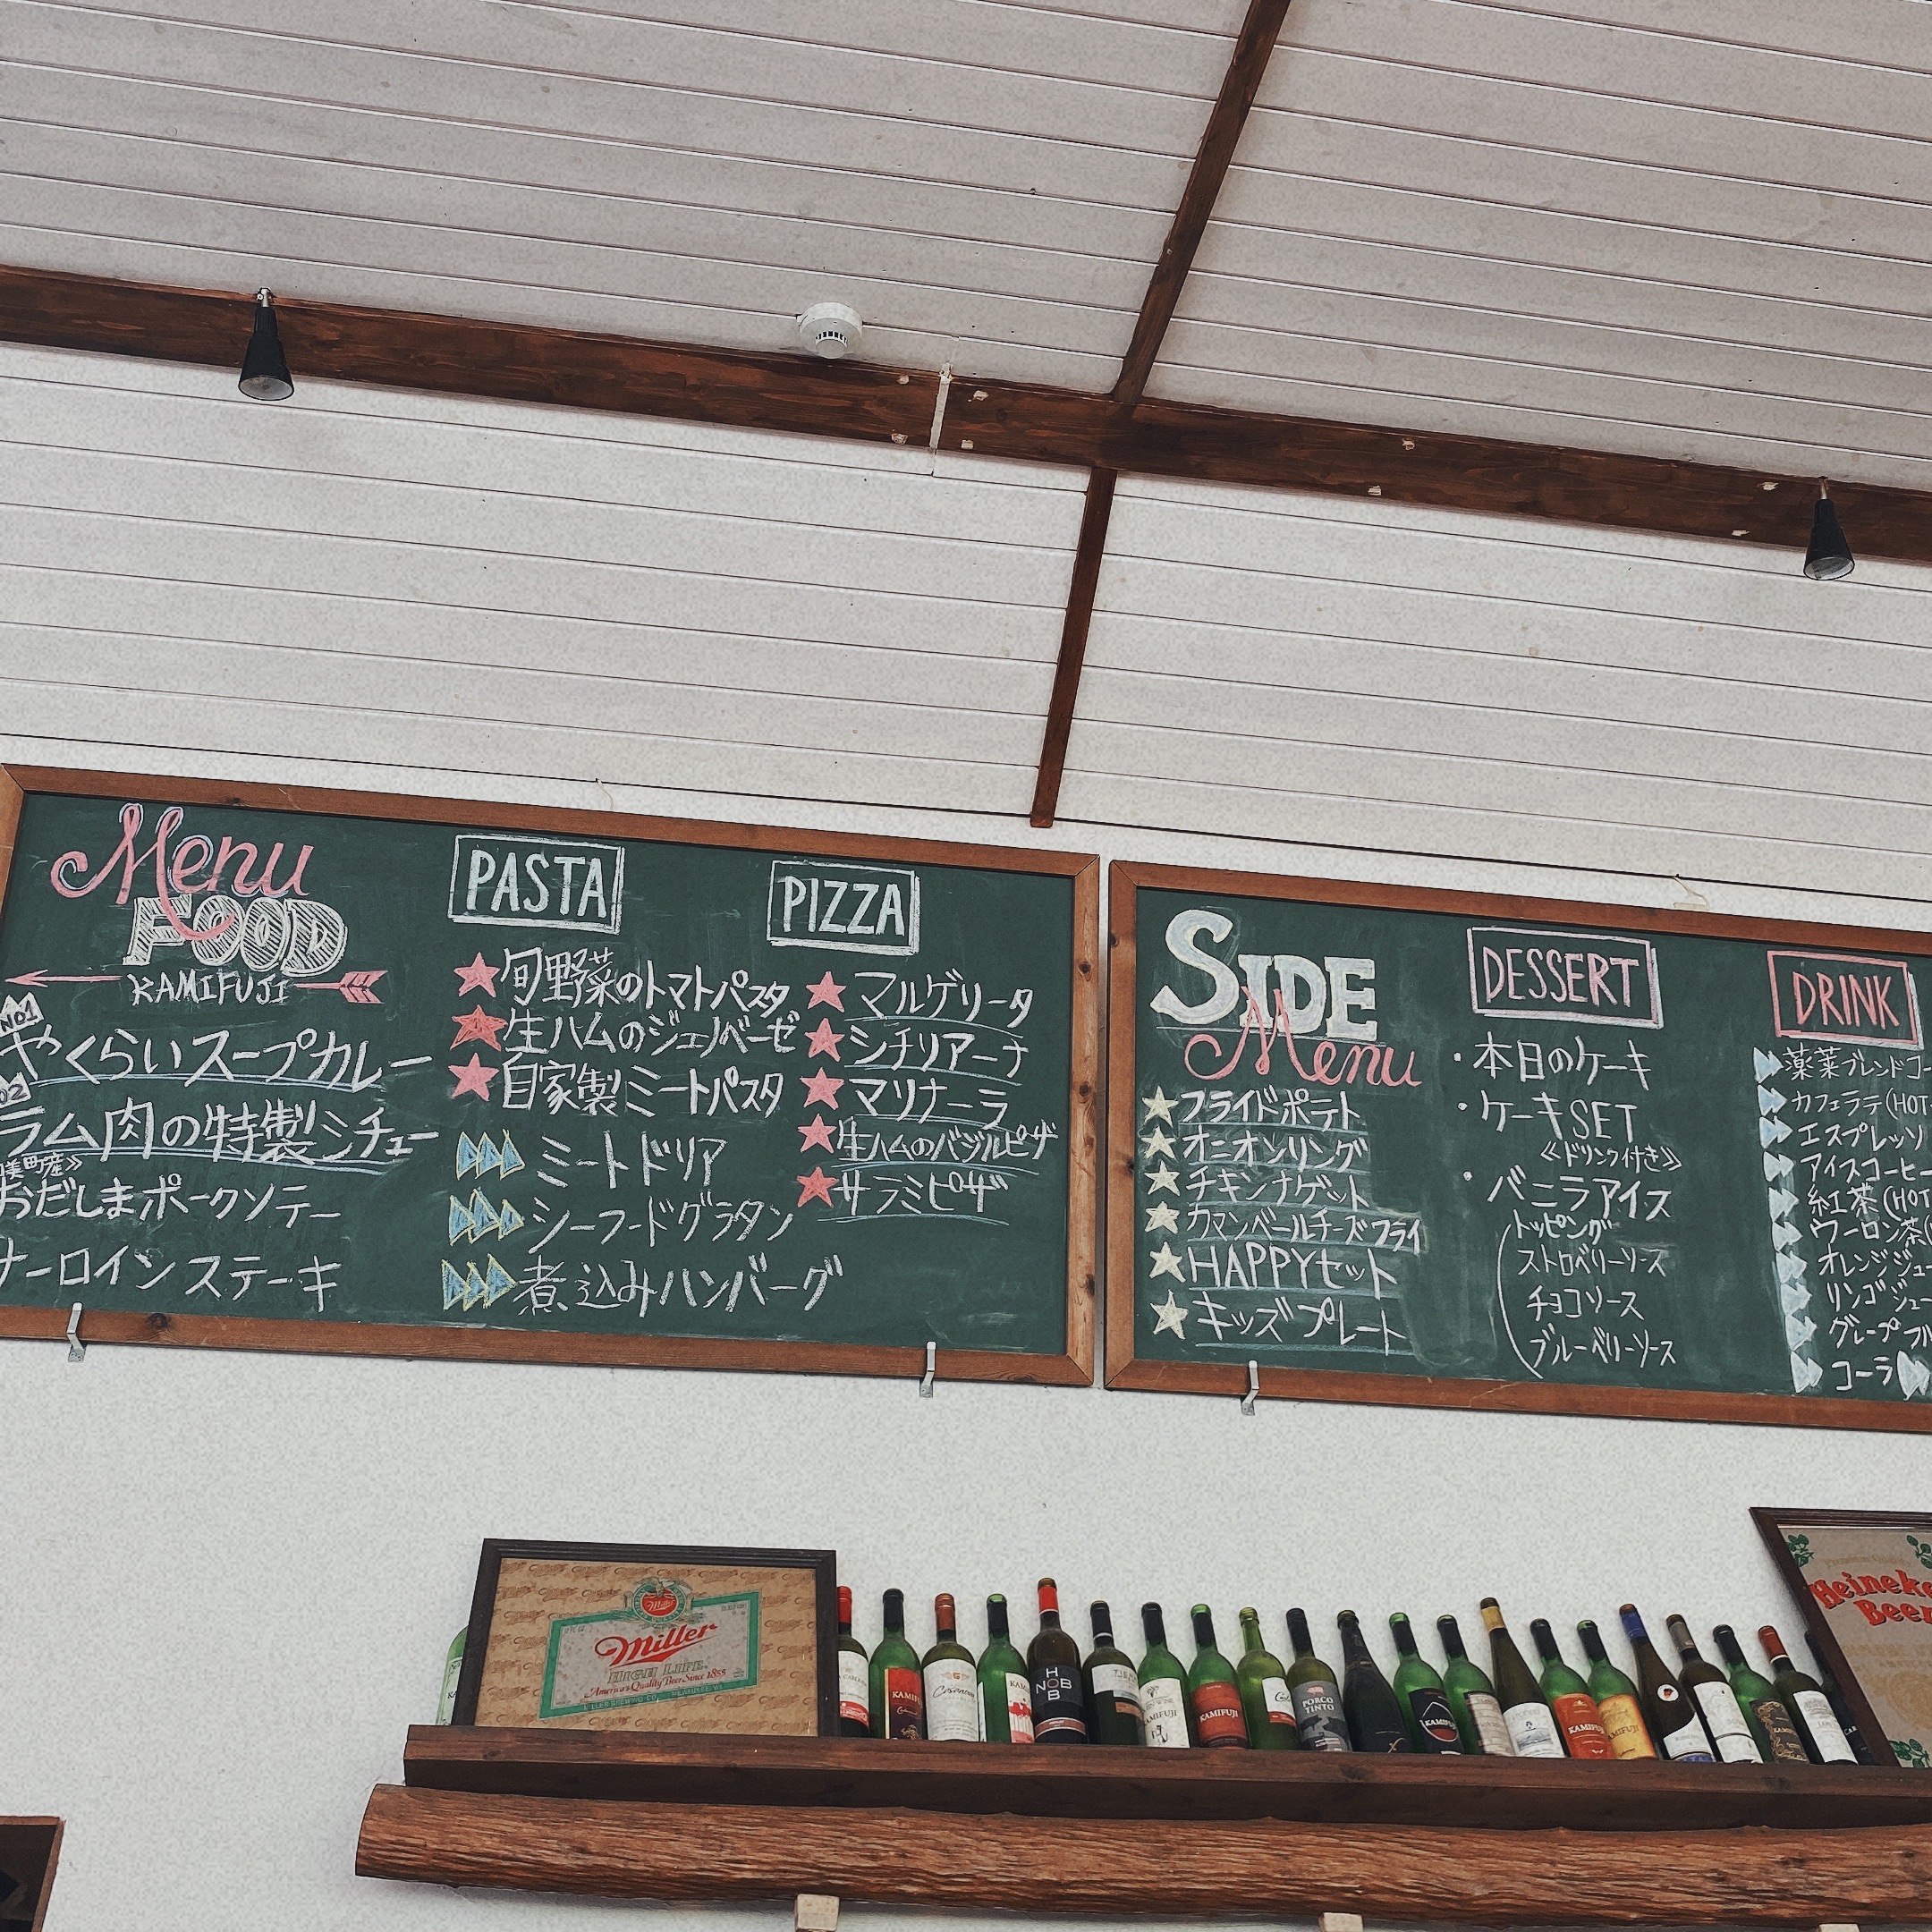 Menu
FOOD
KAMIFUJI
NO1
やくらいスープカレー
ラム肉の特製シチュー
おだしまポークソテー
サーロインステーキ
PASTA
旬野菜のトマトパスタ
生ハムのジェノベーゼ
自家製ミートパスタ
ミートドリア
シーフードグラタン
煮込みハンバーグ
PIZZA
マルゲリータ
シチリアーナ
マリナーラ
生ハムのバジルピザ
サラミピザ
SIDE
Menu
フライドポテト
オニオンリング
チキンナゲット
カマンベールチーズフライ
HAPPYセット
キッズプレート
DESSERT
・本日のケーキ
・ケーキSET
≪ドリンク付き≫
・バニラアイス
トッピング
ストロベリーソース
チョコソース
ブルーベリーソース
DRINK
薬菜ブレンドコー
カフェラテ(HOT
エスプレッソ
アイスコーヒ
紅茶(HOT
ウーロン茶(
オレンジジュー
リンゴジュー
グレープフル
コーラ
Miller
HIGH LIFE
America's Quality Beer Since 1855
KAMIFUJI
HOB
NOB
KAMIFUJI
KAMIFUJI
PORCO
TINTO
KAMIFUJI
KAMIFUJI
KAMIFUJI
Heineke
Beer